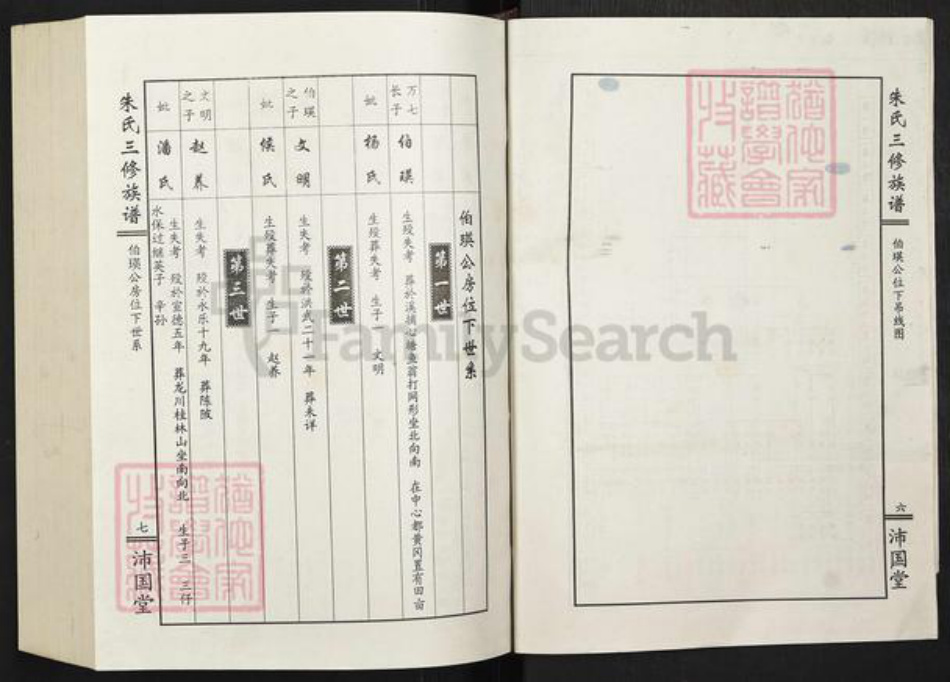 朱氏三修族谱
伯瑛公位下吊线图
六
沛国堂
伯瑛公房位下世系
第一世
万七长子 伯瑛 生殁失考 葬於溪摛心塘鱼翁打网形坐北向南 在中心都黄冈置有田亩
妣 杨氏 生殁葬失考 生子一 文明
第二世
伯瑛之子 文明 生失考 殁於洪武二十一年 葬未详
妣 侯氏 生殁葬失考 生子一 赵养
第三世
文明之子 赵养 生失考 殁於永乐十九年 葬陈陂
妣 潘氏 生失考 殁於宣德五年 葬龙川桂林山坐南向北 生子三 三仔
水保过继英子 辛孙
朱氏三修族谱
伯瑛公房位下世系
七
沛国堂
猶他家譜學會收藏
猶他家譜學會收藏
FamilySearch